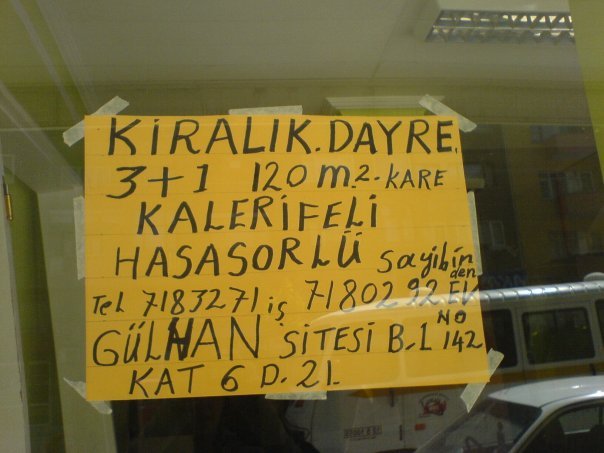 KİRALIK. DAYRE.
3+1 120 m.2-KARE
KALERİFELİ
HASASORLÜ sayibin
den
Tel 7183271 iş 7180292 EV
GÜLHAN SİTESİ B-1 NO 142
KAT 6 D. 21.